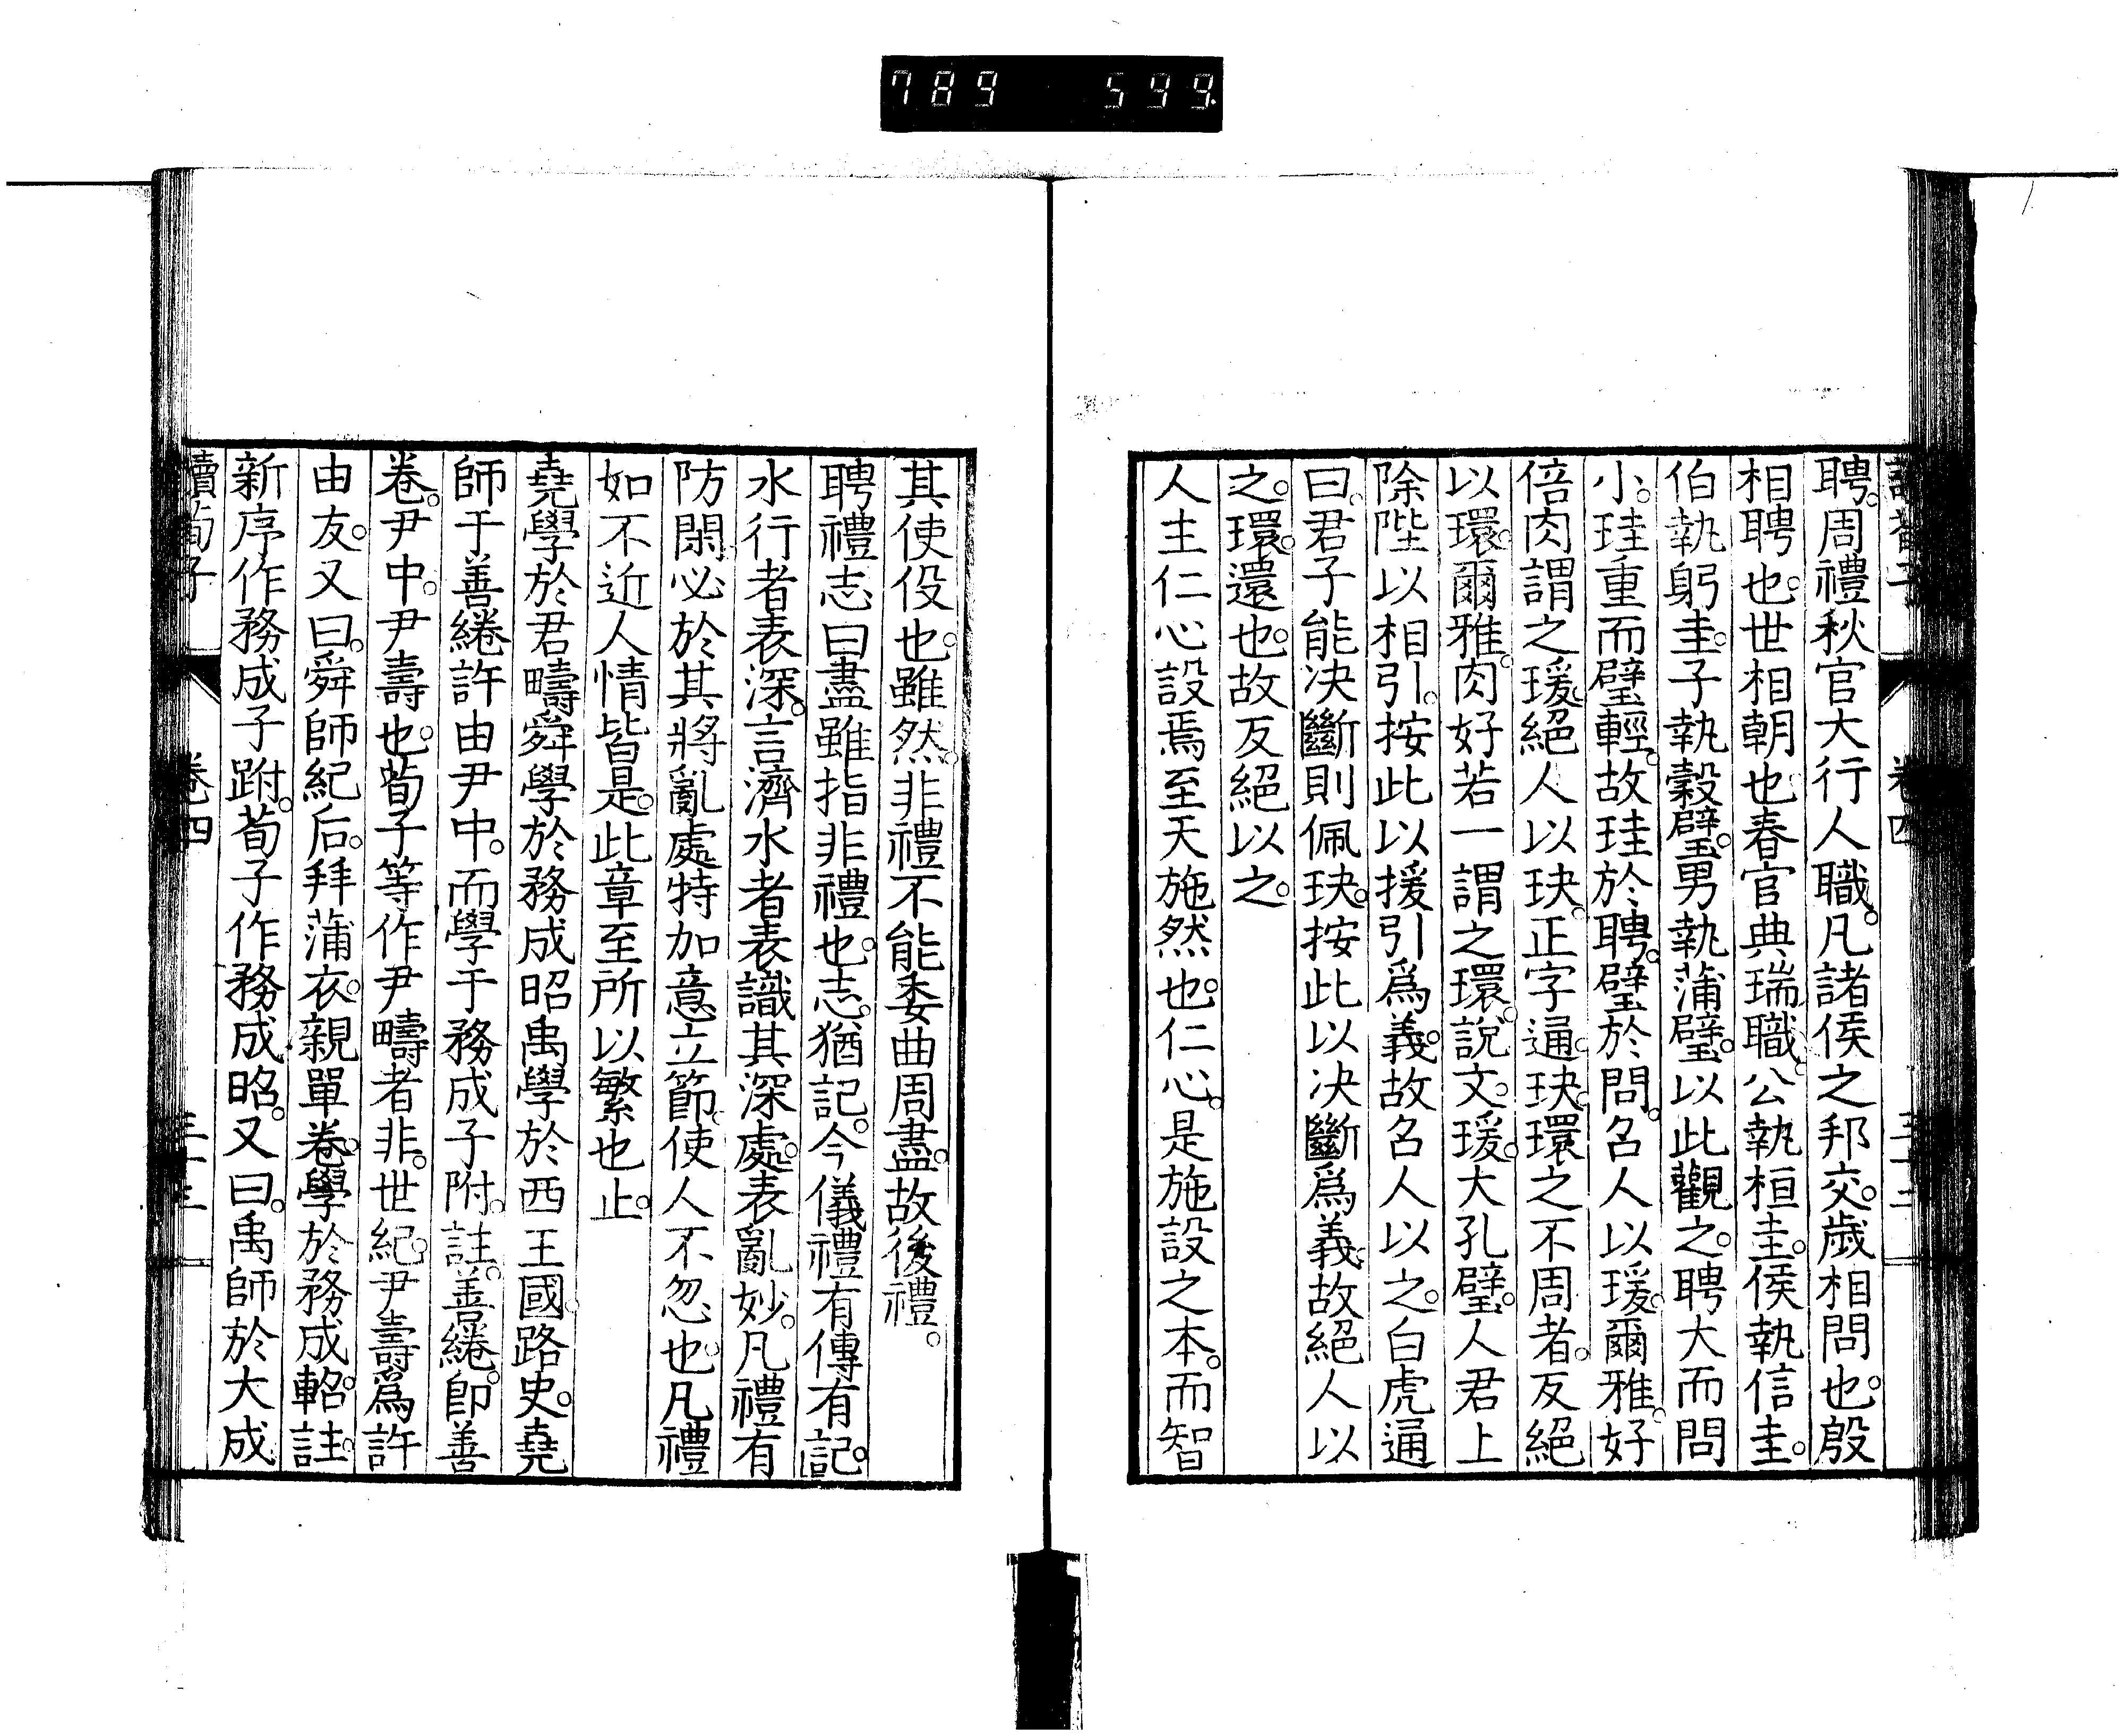 789 599
聘。周禮秋官大行人職。凡諸侯之邦交。歲相問也。殷
相聘也。世相朝也。春官典瑞職。公執桓圭。侯執信圭。
伯執躬圭。子執穀璧。男執蒲璧。以此觀之。聘大而問
小。珪重而璧輕。故珪於聘。璧於問。召人以瑗。爾雅。好
倍肉謂之瑗。絕人以玦。正字通。玦。環之不周者。反絕
以環。爾雅。肉好若一謂之環。說文。瑗。大孔璧。人君上
除陛以相引。按此以援引爲義。故召人以之。白虎通
曰。君子能决斷則佩玦。按此以决斷爲義。故絕人以
之。環。還也。故反絕以之。
人主仁心設焉至天施然也。仁心。是施設之本。而智
其使役也。雖然。非禮不能委曲周盡。故後禮。
聘禮志曰盡雖指非禮也。志。猶記。今儀禮有傳有記。
水行者表深。言濟水者表識其深處。表亂妙。凡禮有
防閑必於其將亂處特加意立節。使人不忽也。凡禮
如不近人情皆是。此章至所以繁也止。
堯學於君疇舜學於務成昭禹學於西王國。路史。堯
師于善綣許由尹中。而學于務成子附。註。善綣。卽善
卷。尹中。尹壽也。荀子等作尹疇者非。世紀。尹壽爲許
由友。又曰。舜師紀后。拜蒲衣。親單卷。學於務成軺。註。
新序作務成子跗。荀子作務成昭。又曰。禹師於大成
讀荀子 卷四